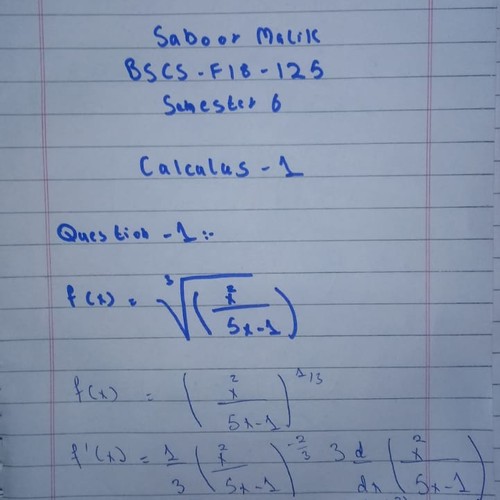 Saboor Malik
BSCS-F18-125
Semester 6
Calculus-1
Question-1:-
f(x) = ∛(x²/(5x-1))
f(x) = (x²/(5x-1))^1/3
f'(x) = 1/3 (x²/(5x-1))^-2/3 3 d/dx (x²/(5x-1))